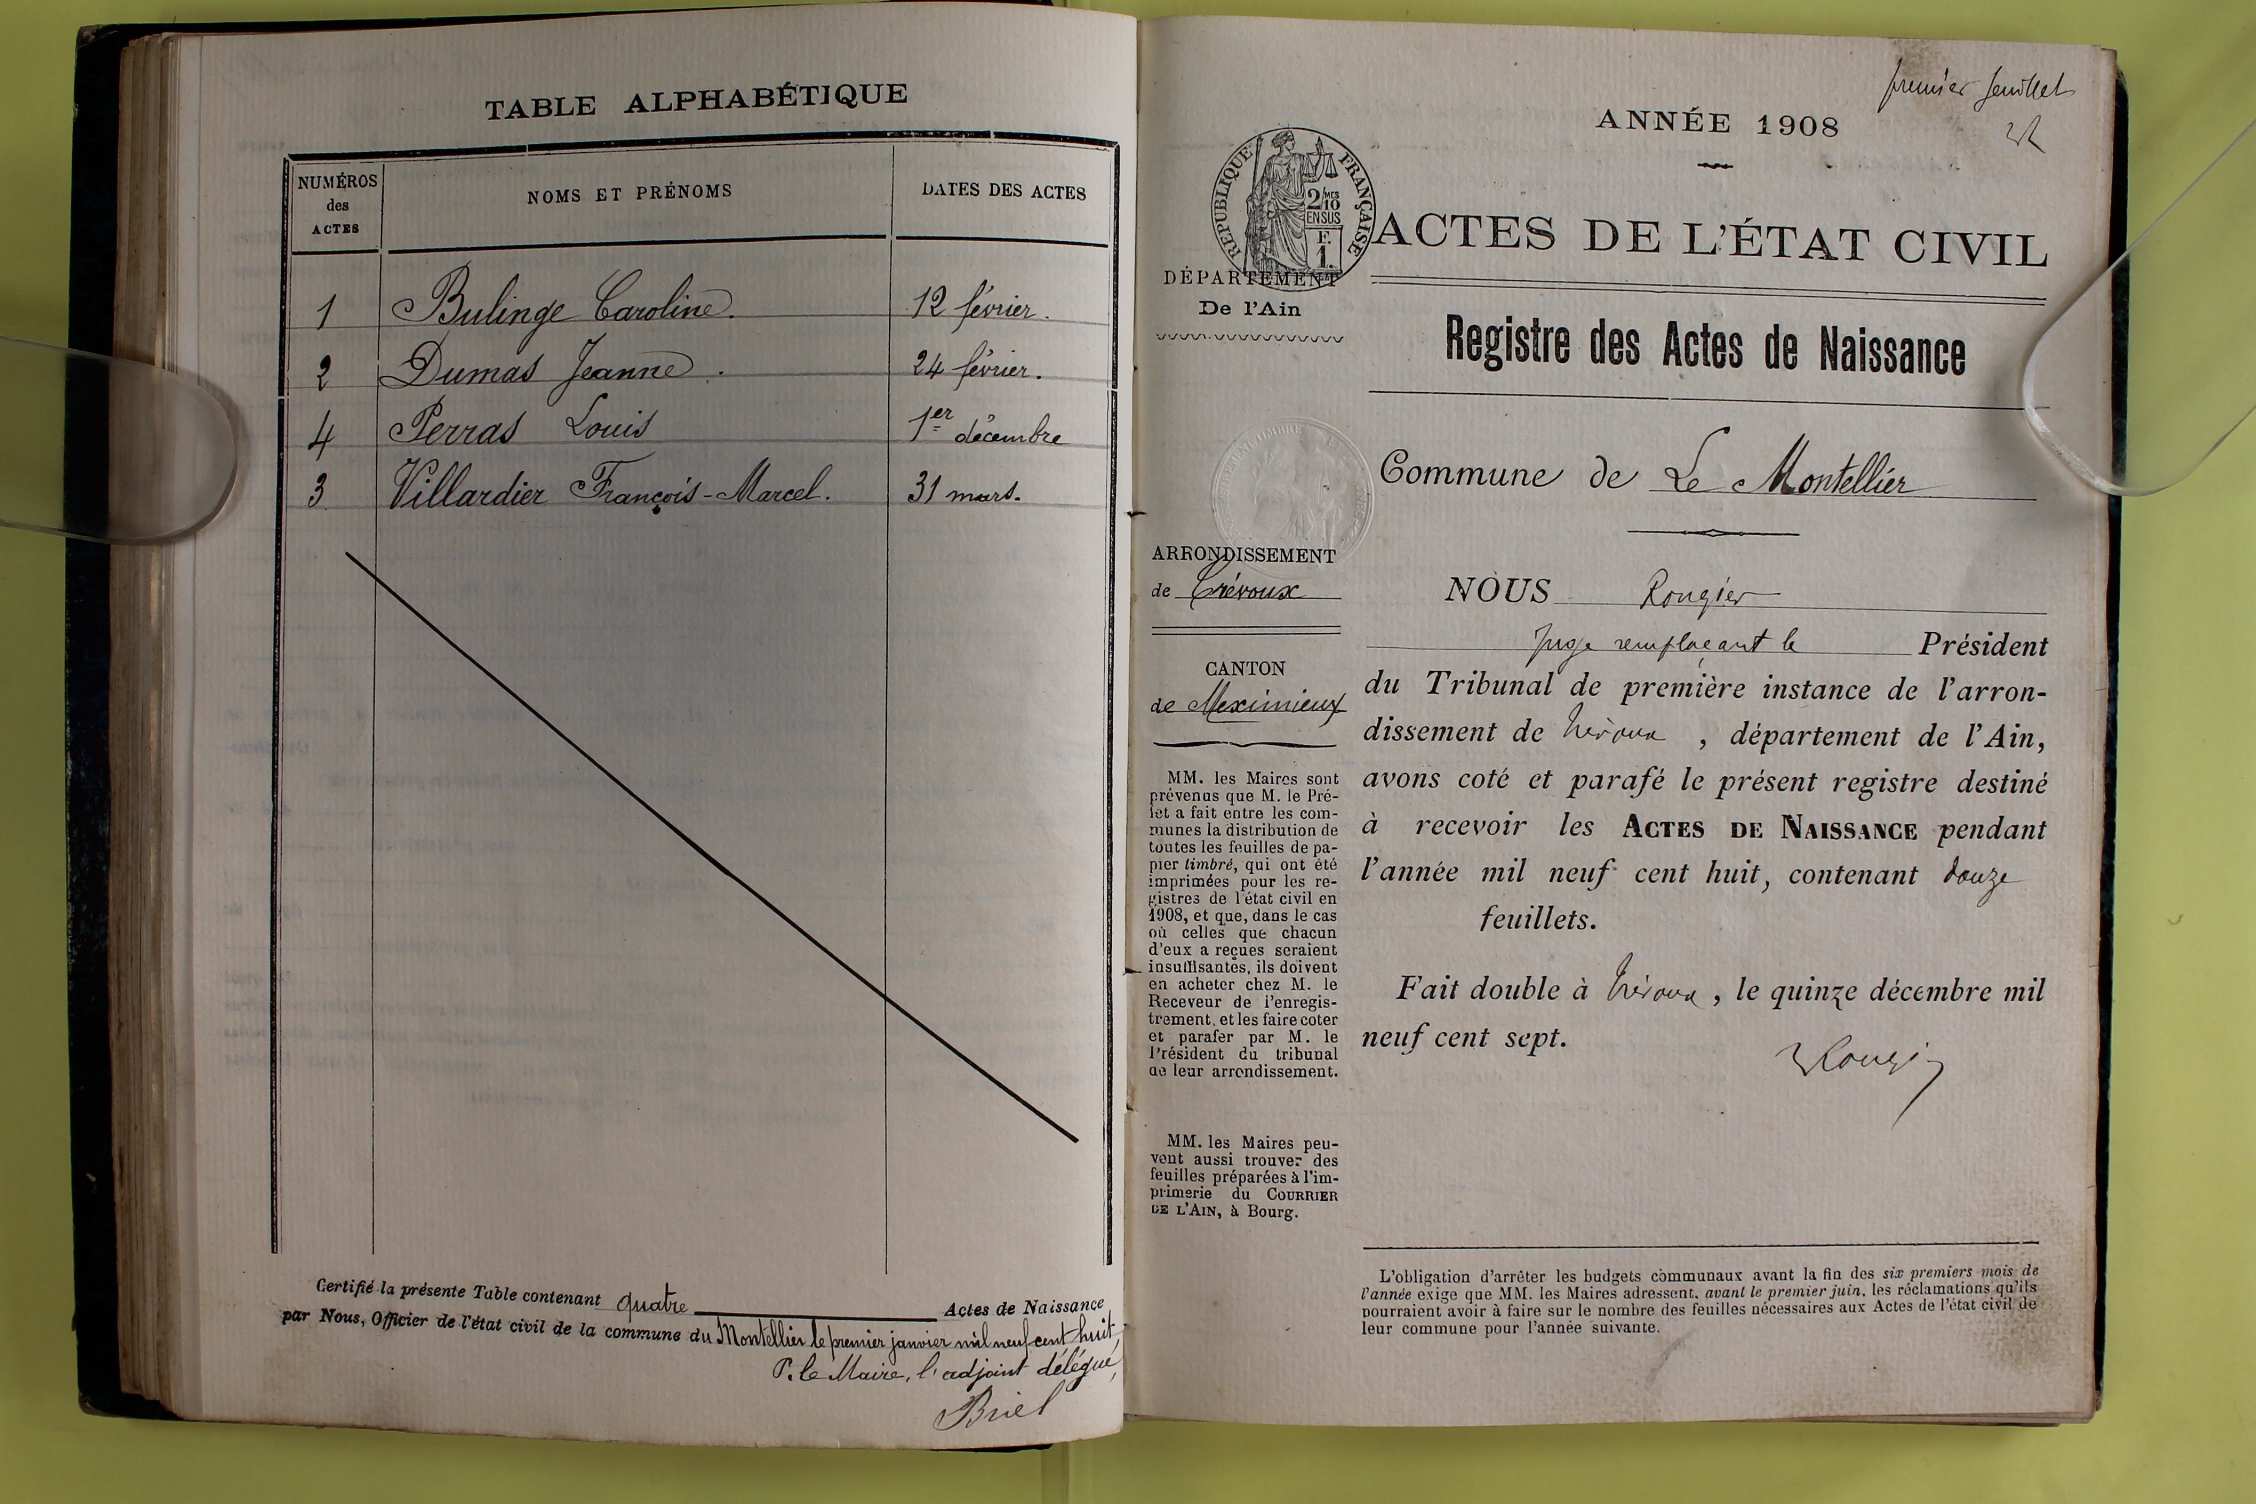 TABLE ALPHABÉTIQUE
NUMÉROS
des
ACTES
NOMS ET PRÉNOMS
DATES DES ACTES
1 Bulinge Caroline. 12 février.
2 Dumas Jeanne. 24 février.
4 Perras Louis 1er décembre
3 Villardier François-Marcel. 31 mars.
Certifié la présente Table contenant quatre Actes de Naissance
par Nous, Officier de l'état civil de la commune du Montellier le premier janvier mil neuf cent huit,
P. le Maire, l'adjoint délégué,
premier feuillet
ANNÉE 1908
RÉPUBLIQUE FRANÇAISE
2/10 MES
EN SUS
F.
1.
ACTES DE L'ÉTAT CIVIL
DÉPARTEMENT
De l'Ain
Registre des Actes de Naissance
Commune de Le Montellier
ARRONDISSEMENT
de Trévoux
CANTON
de Meximieux
MM. les Maires sont
prévenus que M. le Pré-
fet a fait entre les com-
munes la distribution de
toutes les feuilles de pa-
pier timbré, qui ont été
imprimées pour les re-
gistres de l'état civil en
1908, et que, dans le cas
où celles que chacun
d'eux a reçues seraient
insuffisantes, ils doivent
en acheter chez M. le
Receveur de l'enregis-
trement, et les faire coter
et parafer par M. le
Président du tribunal
de leur arrondissement.
MM. les Maires peu-
vent aussi trouver des
feuilles préparées à l'im-
primerie du COURRIER
DE L'AIN, à Bourg.
NOUS Rougier
Juge remplaçant le Président
du Tribunal de première instance de l'arron-
dissement de Trévoux, département de l'Ain,
avons coté et parafé le présent registre destiné
à recevoir les ACTES DE NAISSANCE pendant
l'année mil neuf cent huit, contenant douze
feuillets.
Fait double à Trévoux, le quinze décembre mil
neuf cent sept.
Rougier
L'obligation d'arrêter les budgets communaux avant la fin des six premiers mois de
l'année exige que MM. les Maires adressent, avant le premier juin, les réclamations qu'ils
pourraient avoir à faire sur le nombre des feuilles nécessaires aux Actes de l'état civil de
leur commune pour l'année suivante.